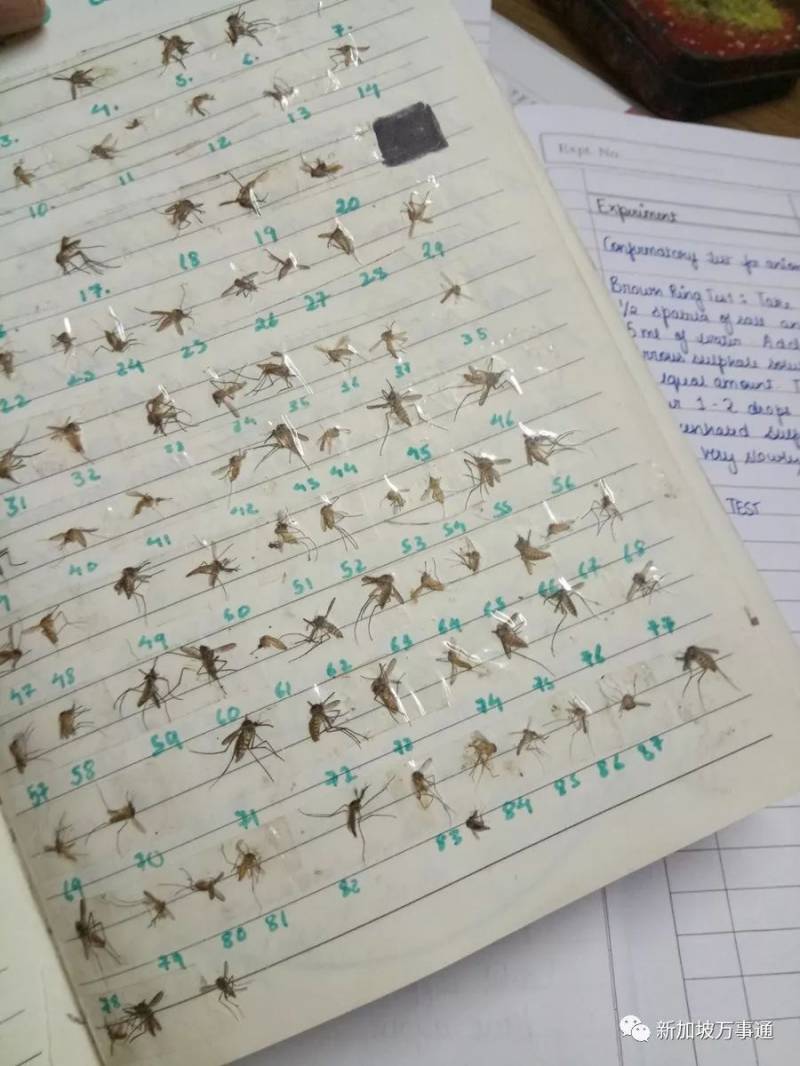 3. 4. 5. 6. 7.
10. 11 12 13 14
17. 18 19 20
22 23 24 25 26 27 28 29
31 32 33 34 35 36 37 35
40 41 42 43 44 45 46
47 48 49 50 51 52 53 54 55 56
57 58 59 60 61 62 63 64 65 66 67 68
69 70 71 72 73 74 75 76 77
78 79 80 81 82 83 84 85 86 87
Expt. No
Experiment
Confirmatory test for anion
Brown Ring Test : Take
1/2 spatula of salt an
5 ml of water Add
rrous sulphate solu
equal amount T
r 1-2 drops
very slowly
TEST
新加坡万事通